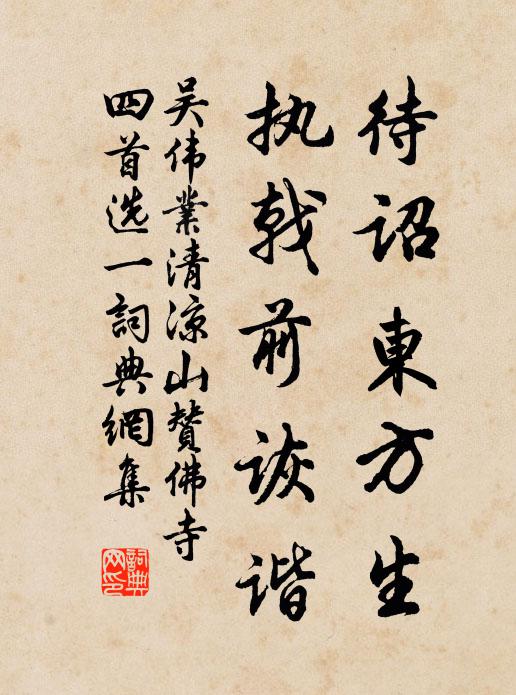 待诏東方生
执戟前诙谐
吴伟業清凉山赞佛寺
四首选一詞典網集
詞典
网印